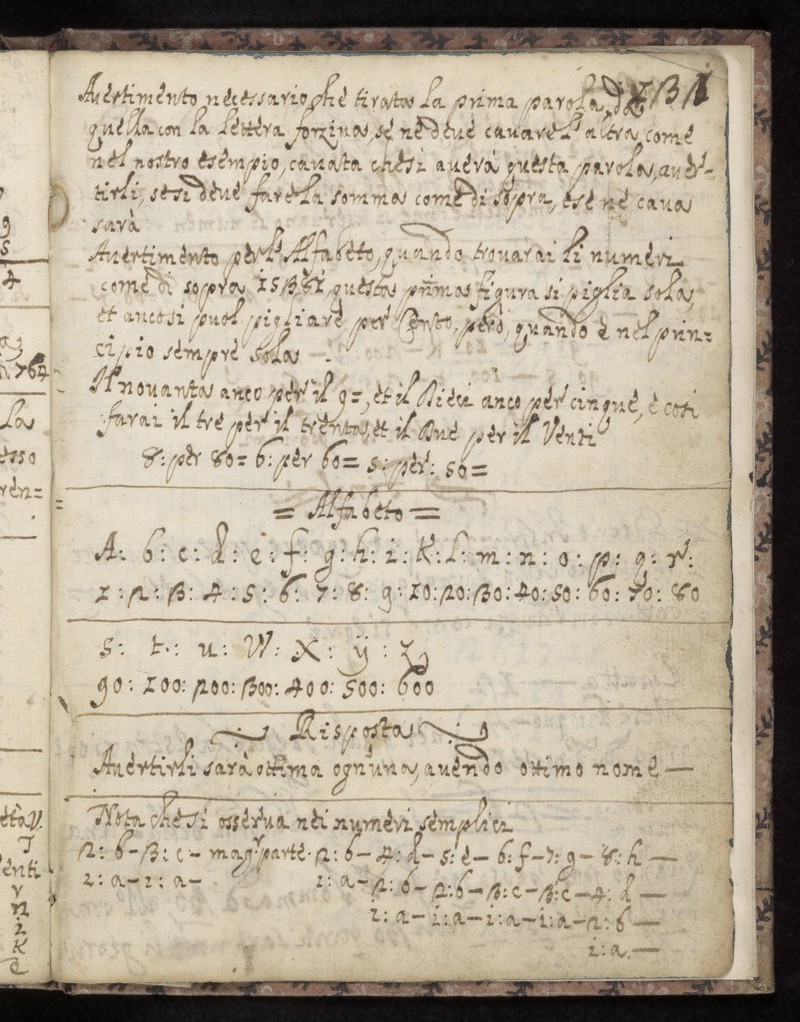 Auertimento necessario che tirata la prima parola, da
quella con la lettera forzina, se ne deue cauare l'altra, come
nel nostro esempio, cauata che si auerà questa parola, auer-
tirli, se si deue fare la somma come di sopra, e se ne caua
sarà
Auertimento per l'Alfabeto, quando trouarai li numeri
come di sopra questa prima figura si piglia sola,
et anco si puol pigliare per Cento, però, quando è nel prin=
cipio sempre sola
Il nouanta anco per il 9=, et il Dieci anco per cinque, e cosi
farai il tre per il trenta, et il Due per il Venti
8: per 80= 6: per 60= 5: per: 50=
= Alfabeto =
A: b: c: d: e: f: g: h: i: K: l: m: n: o: p: q: r:
1: 2: 3: 4: 5: 6: 7: 8: 9: 10: 20: 30: 40: 50: 60: 70: 80
s: t: u: W: X: ÿ: z
90: 100: 200: 300: 400: 500: 600
Risposta
Auertirli sarà ottima ogn'una, auendo ottimo nome —
Nota che si osserua nei numeri semplici
2: b- 3: c- mag.r parte 2: b- 4: d- 5: e- 6: f- 7: g- 8: h —
1: a- 1: a- 1: a- 2: b- 2: b- 3: c- 3: c- 4: d —
1: a- 1: a- 1: a- 1: a- 2: b —
1: a —
9
5
4
764
La
esso
ren=
enti
K